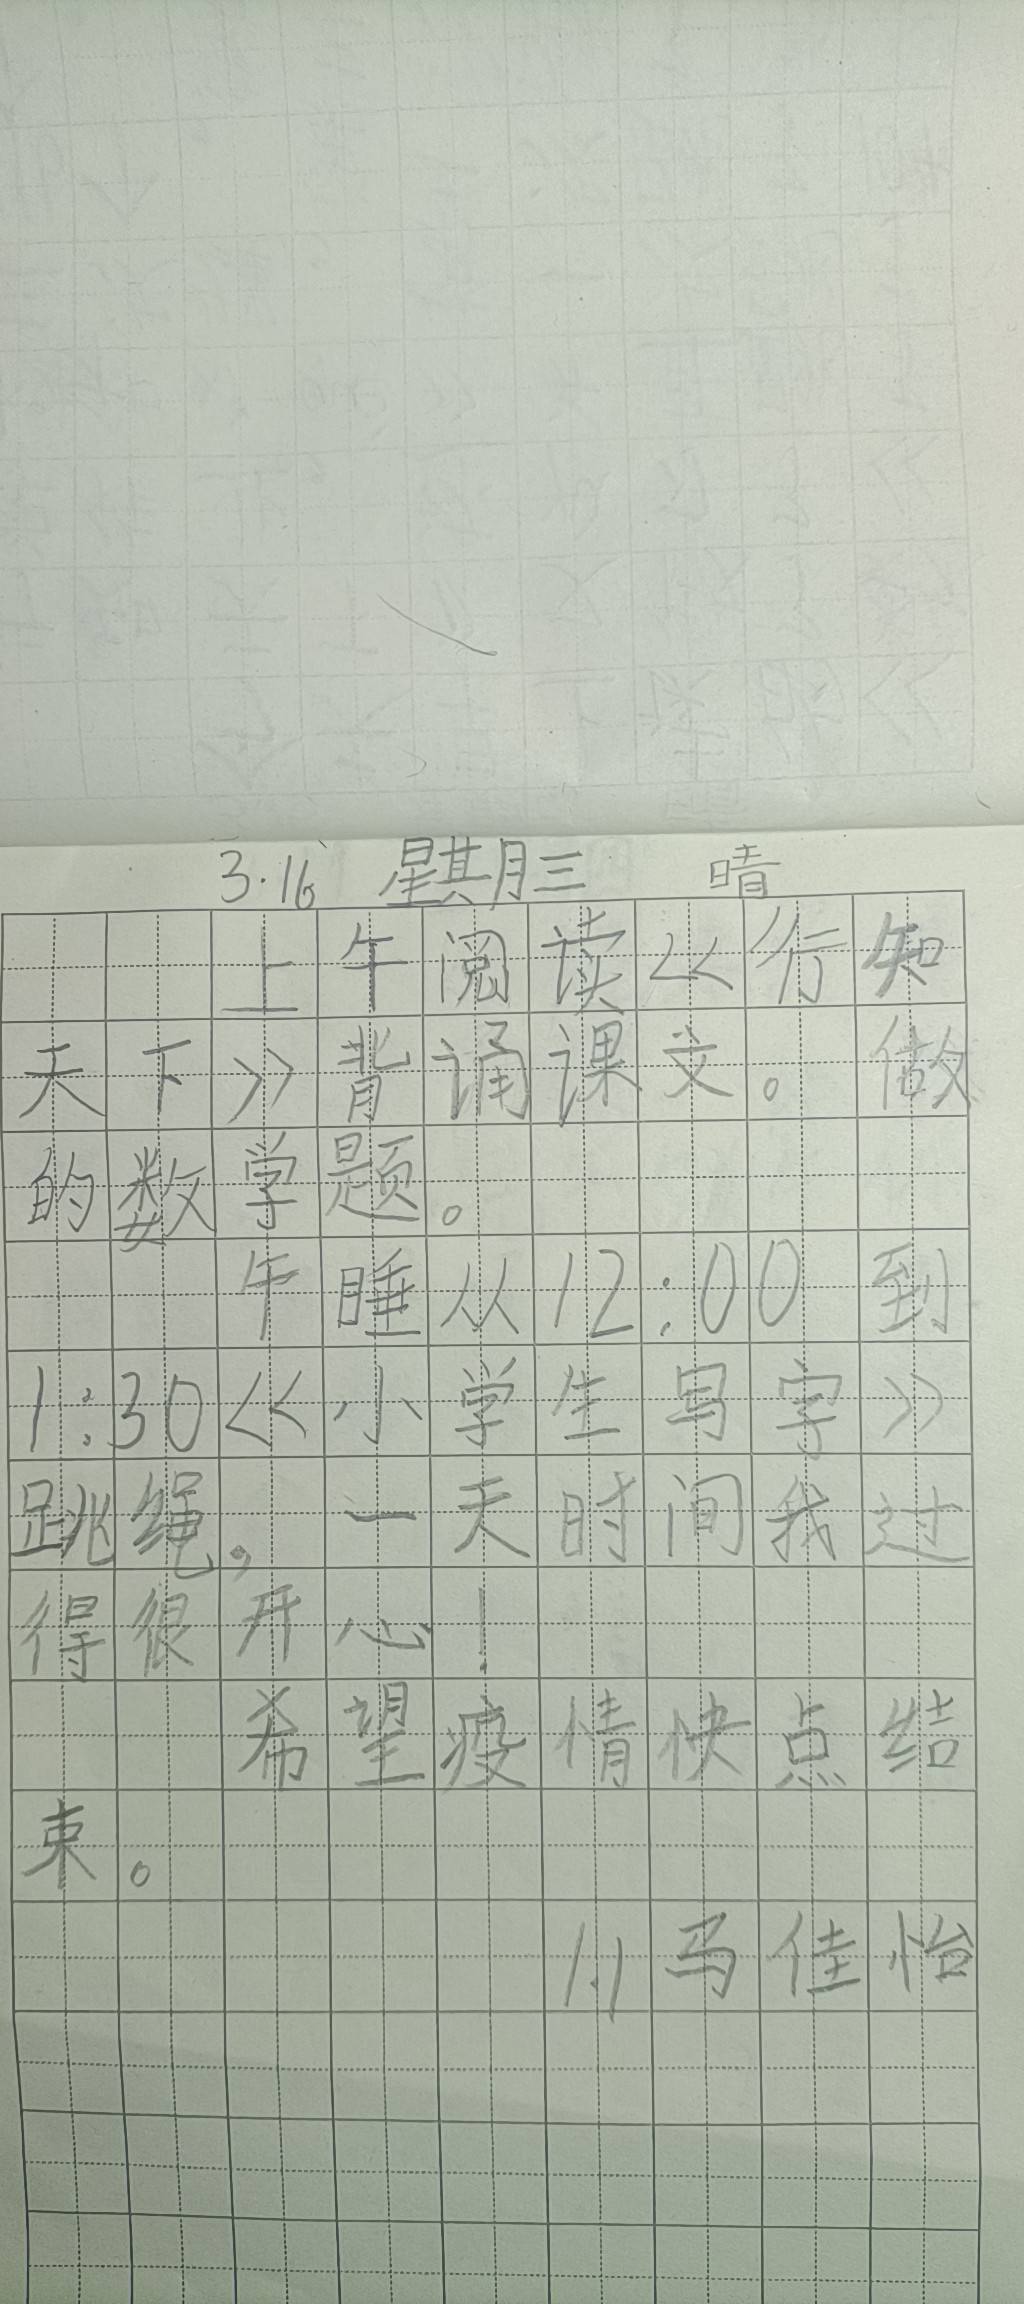 3.16 星期三 晴
上午阅读《行知
天下》背诵课文。做
的数学题。
午睡从12:00到
1:30《小学生写字》
跳绳，一天时间我过
得很开心！
希望疫情快点结
束。
1.1马佳怡